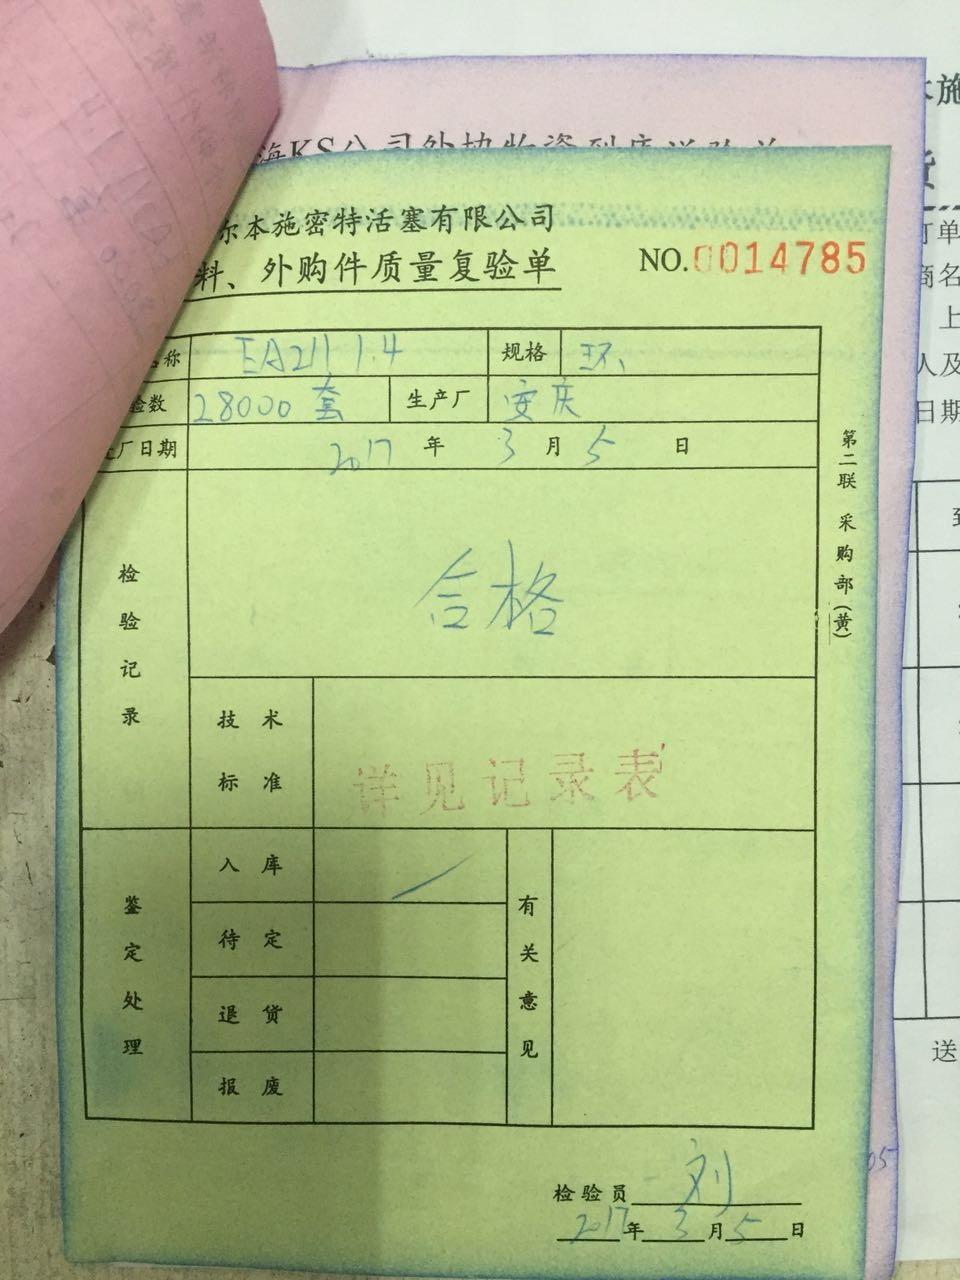 海KS公司外协物资到库送验单
尔本施密特活塞有限公司
料、外购件质量复验单
NO.0014785
名称 EA211 1.4 规格 环
验数 28000 套 生产厂 安庆
厂日期 2017 年 3 月 5 日
检验记录
合格
技术标准
详见记录表
鉴定处理
入库
待定
退货
报废
有关意见
第二联 采购部(黄)
检验员 刘
2017年 3 月 5 日
本施
货
订单
商名
上
人及
日期
送
05